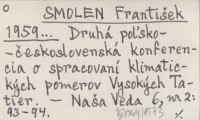 O
SMOLEN František
1959... Druhá poľsko-
-československá konferen-
cia o spracovaní klimatic-
kých pomerov Vysokých Ta-
tier. – Naša Veda 6, nr 2:
93-94.